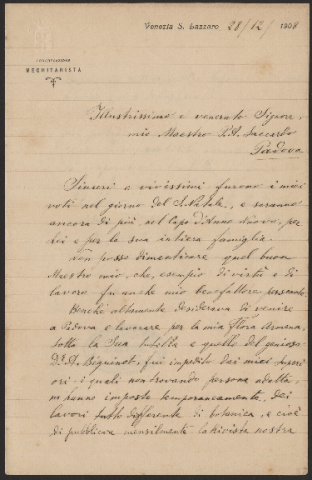 Venezia S. Lazzaro 28/12/1908
CONGREGAZIONE
MECHITARISTA
Illustrissimo e venerato Signore,
mio Maestro P. A. Saccardo
Padova
Sinceri e vivissimi furono i miei
voti nel giorno del S. Natale, e saranno
ancora di più nel Capo d'Anno Nuovo, per
Lei e per la sua intiera famiglia.
Non posso dimenticare quel buon
Maestro mio, che, esempio di virtù e di
lavoro fu anche mio benefattore personale.
Benchè altamente desiderava di venire
a Padova e lavorare per la mia Flora Armena,
sotto la Sua tutella e quella del genioso
Dr. A. Béguinot, fui impedito dai miei Superi
ori - i quali non trovando persona adatta,
m'hanno imposto temporaneamente dei
lavori tutto differente di botanica, e cioè
di pubblicare mensilmente la Rivista nostra